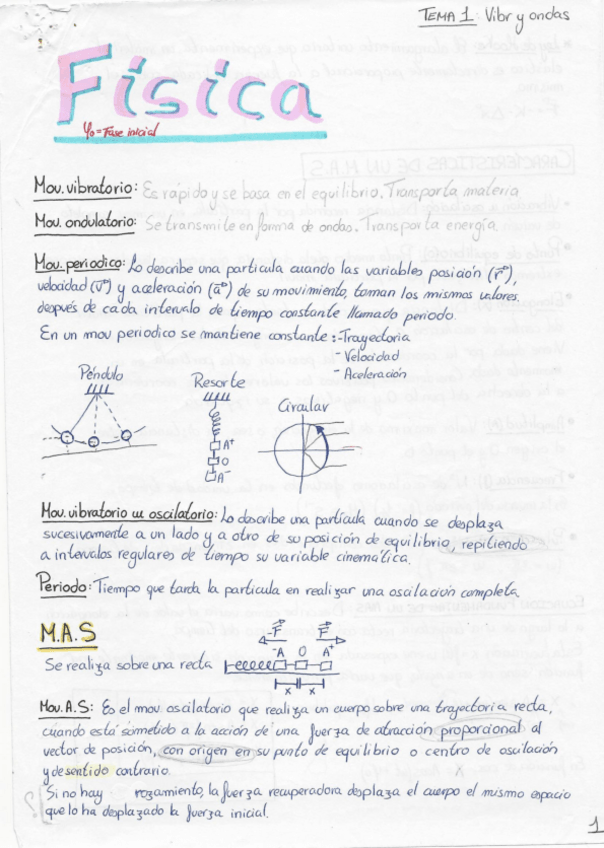 TEMA 1: Vibr y ondas
Física
φ₀ = Fase inicial
Mov. vibratorio: Es rápido y se basa en el equilibrio. Transporta materia
Mov. ondulatorio: Se transmite en forma de ondas. Transporta energía.
Mov. periodico: Lo describe una particula cuando las variables posición (r⃗),
velocidad (v⃗) y aceleración (a⃗) de su movimiento, toman los mismos valores
después de cada intervalo de tiempo constante llamado periodo.
En un mov periodico se mantiene constante: - Trayectoria
- Velocidad
- Aceleración
Péndulo
Resorte
Circular
A⁺
O
A⁻
Mov. vibratorio u oscilatorio: Lo describe una partícula cuando se desplaza
sucesivamente a un lado y a otro de su posición de equilibrio, repitiendo
a intervalos regulares de tiempo su variable cinemática.
Periodo: Tiempo que tarda la particula en realizar una oscilación completa.
M.A.S
-F⃗ F⃗
-A O A
Se realiza sobre una recta
x x
Mov. A.S: Es el mov. oscilatorio que realiza un cuerpo sobre una trayectoria recta,
cuando está sometido a la acción de una fuerza de atracción proporcional al
vector de posición, con origen en su punto de equilibrio o centro de oscilación
y de sentido contrario.
Si no hay rozamiento, la fuerza recuperadora desplaza el cuerpo el mismo espacio
que lo ha desplazado la fuerza inicial.
1